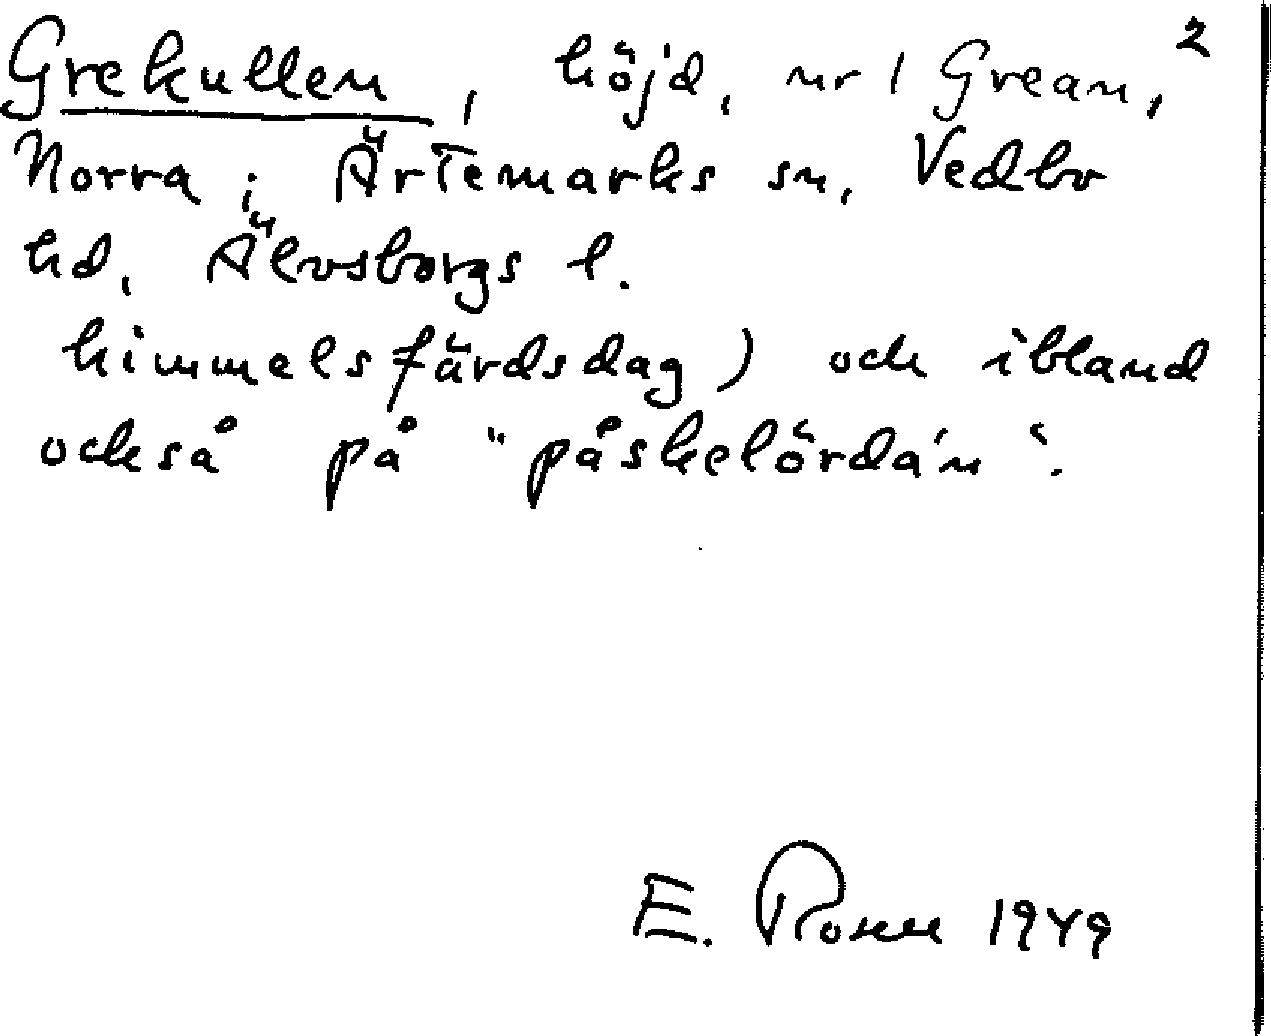 Grekullen, höjd, nr 1 Grean, 2
Norra; Ärtemarks sn, Vedbo
hd, Älvsborgs l.
himmelsfärdsdag) och ibland
också på "påskelördán".
E. 1949